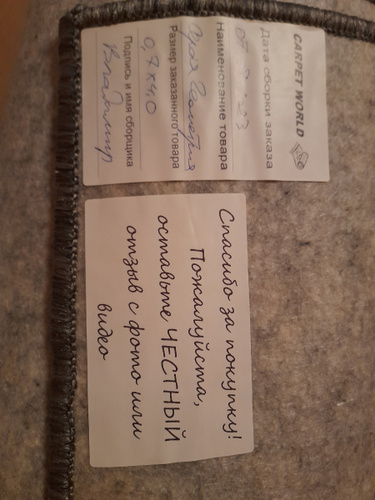 CARPET WORLD
Дата сборки заказа
Наименование товара
Серая Геометрия
Размер заказанного товара
0,7х4,0
Подпись и имя сборщика
Владимир
Спасибо за покупку!
Пожалуйста,
оставьте ЧЕСТНЫЙ
отзыв с фото или
видео